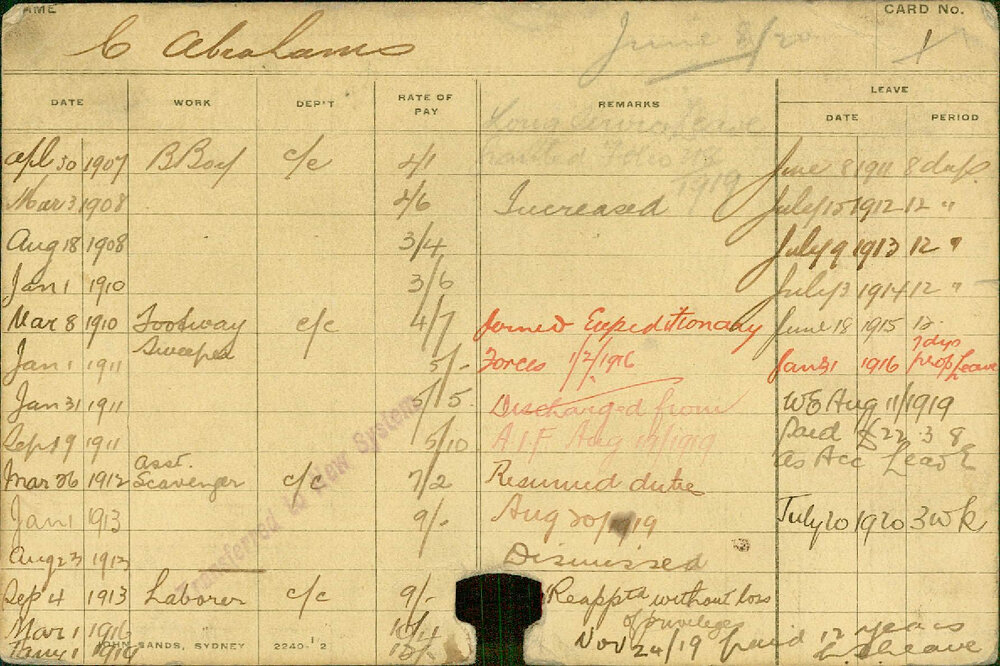 NAME CARD No.
C Abrahams June 8/20 1
DATE WORK DEP'T RATE OF PAY REMARKS LEAVE
DATE PERIOD
Long Service Leave
Apl 30 1907 B Boy c/c 4/1 granted June 8 1911 8 days
1919
Mar 3 1908 4/6 Increased July 15 1912 12 "
Aug 18 1908 3/4 July 9 1913 12 "
Jan 1 1910 3/6 July 3 1914 12 "
Mar 8 1910 Footway Sweeper c/c 4/7 Joined Expeditionary June 18 1915 12
Jan 1 1911 5/- Forces 1/2/1916 Jan 31 1916 7 dys prop Leave
Jan 31 1911 5/5 Discharged from WE Aug 11/1919
Sep 19 1911 5/10 A.I.F Aug 19/1919 Paid £22 3 8
as Acc Leave
Mar 26 1912 asst. Scavenger c/c 7/2 Resumed duties
Jan 1 1913 9/- Aug 20/1919 July 20 1920 3 wk
Aug 23 1913 Dismissed
Sep 4 1913 Laborer c/c 9/- Reapptd without loss
of privileges
Mar 1 1916 10/4
Nov 24/19 paid 12 years
L S leave
JOHN SANDS, SYDNEY 2240-'2
Transferred to New System